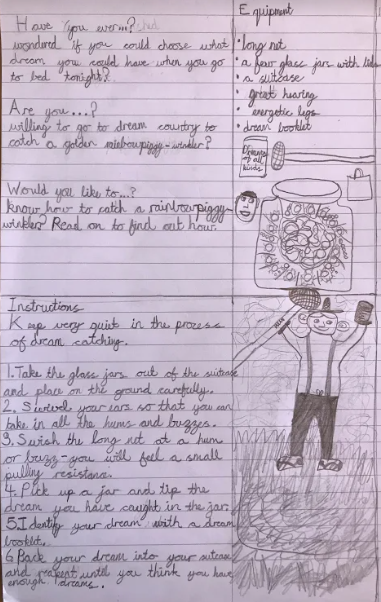 Have you ever...?
wondered if you could choose what
dream you could have when you go
to bed tonight?
Are you...?
willing to go to dream country to
catch a golden rainbowpiggy-winkler?
Would you like to...?
know how to catch a rainbowpiggy-
winkler? Read on to find out how.
Equipment
• long net
• a few glass jars with lids
• a suitcase
• great hearing
• energetic legs
• dream booklet
of all
kinds
Instructions
Keep very quiet in the process
of dream catching.
1. Take the glass jars out of the suitcase
and place on the ground carefully.
2. Swivel your ears so that you can
take in all the hums and buzzes.
3. Swish the long net at a hum
or buzz-you will feel a small
pulling resistance.
4. Pick up a jar and tip the
dream you have caught in the jar.
5. Identify your dream with a dream
booklet.
6. Pack your dream into your suitcase
and repeat until you think you have
enough dreams.